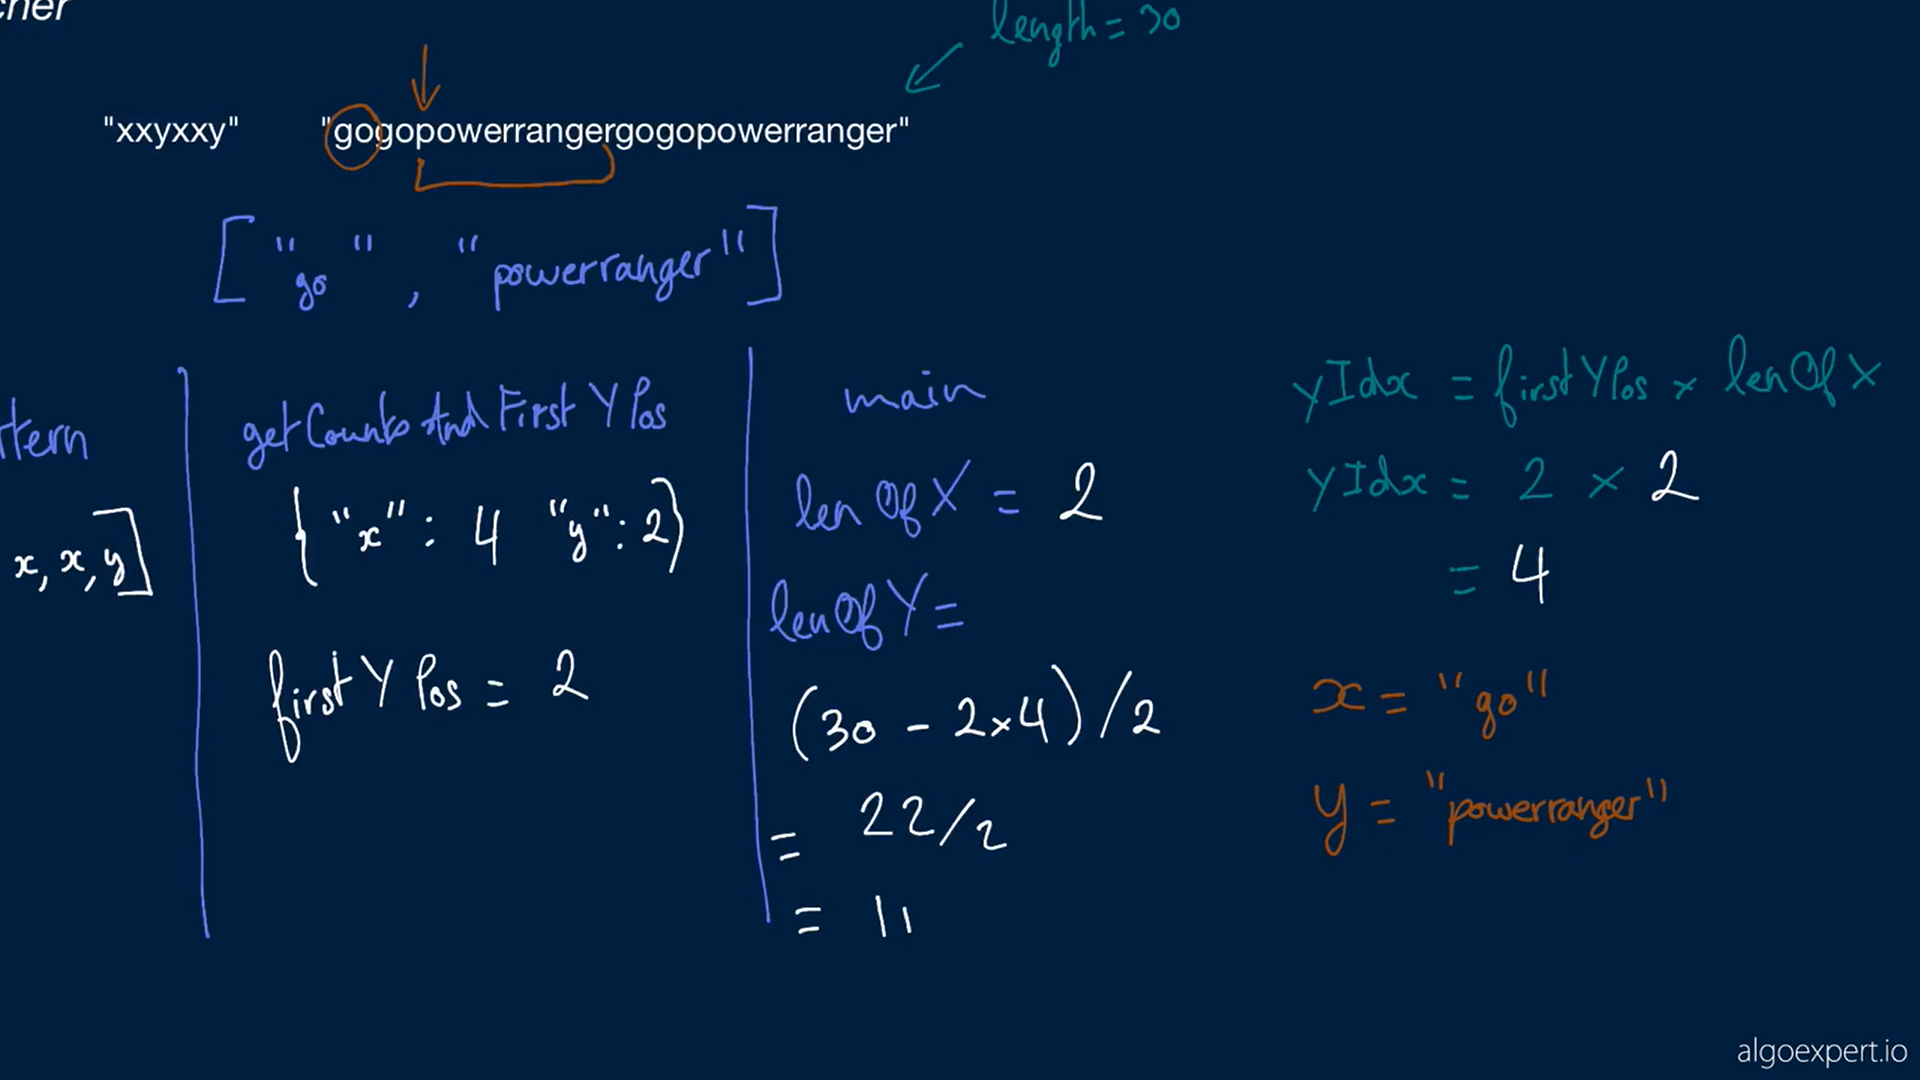 cher
length = 30
"xxyxxy" "gogopowerrangergogopowerranger"
["go", "powerranger"]
ttern
x, x, y]
getCountsAndFirstYPos
{"x": 4 "y": 2}
firstYPos = 2
main
lenOfX = 2
lenOfY =
(30 - 2x4)/2
= 22/2
= 11
yIdx = firstYPos x lenOfX
yIdx = 2 x 2
= 4
x = "go"
y = "powerranger"
algoexpert.io